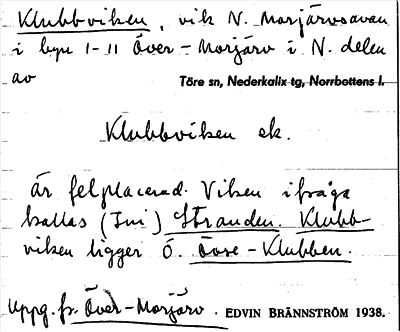 Klubbviken, vik N. Morjärvsavan
i byn 1-11 Över-Morjärv i N. delen
av Töre sn, Nederkalix tg, Norrbottens l.
Klubbviken ek.
är felplacerad. Viken ifråga
kallas (Ini) Stranden. Klubb-
viken ligger Ö. Övse-Klubben.
Uppg. fr. Över-Morjärv. EDVIN BRÄNNSTRÖM 1938.